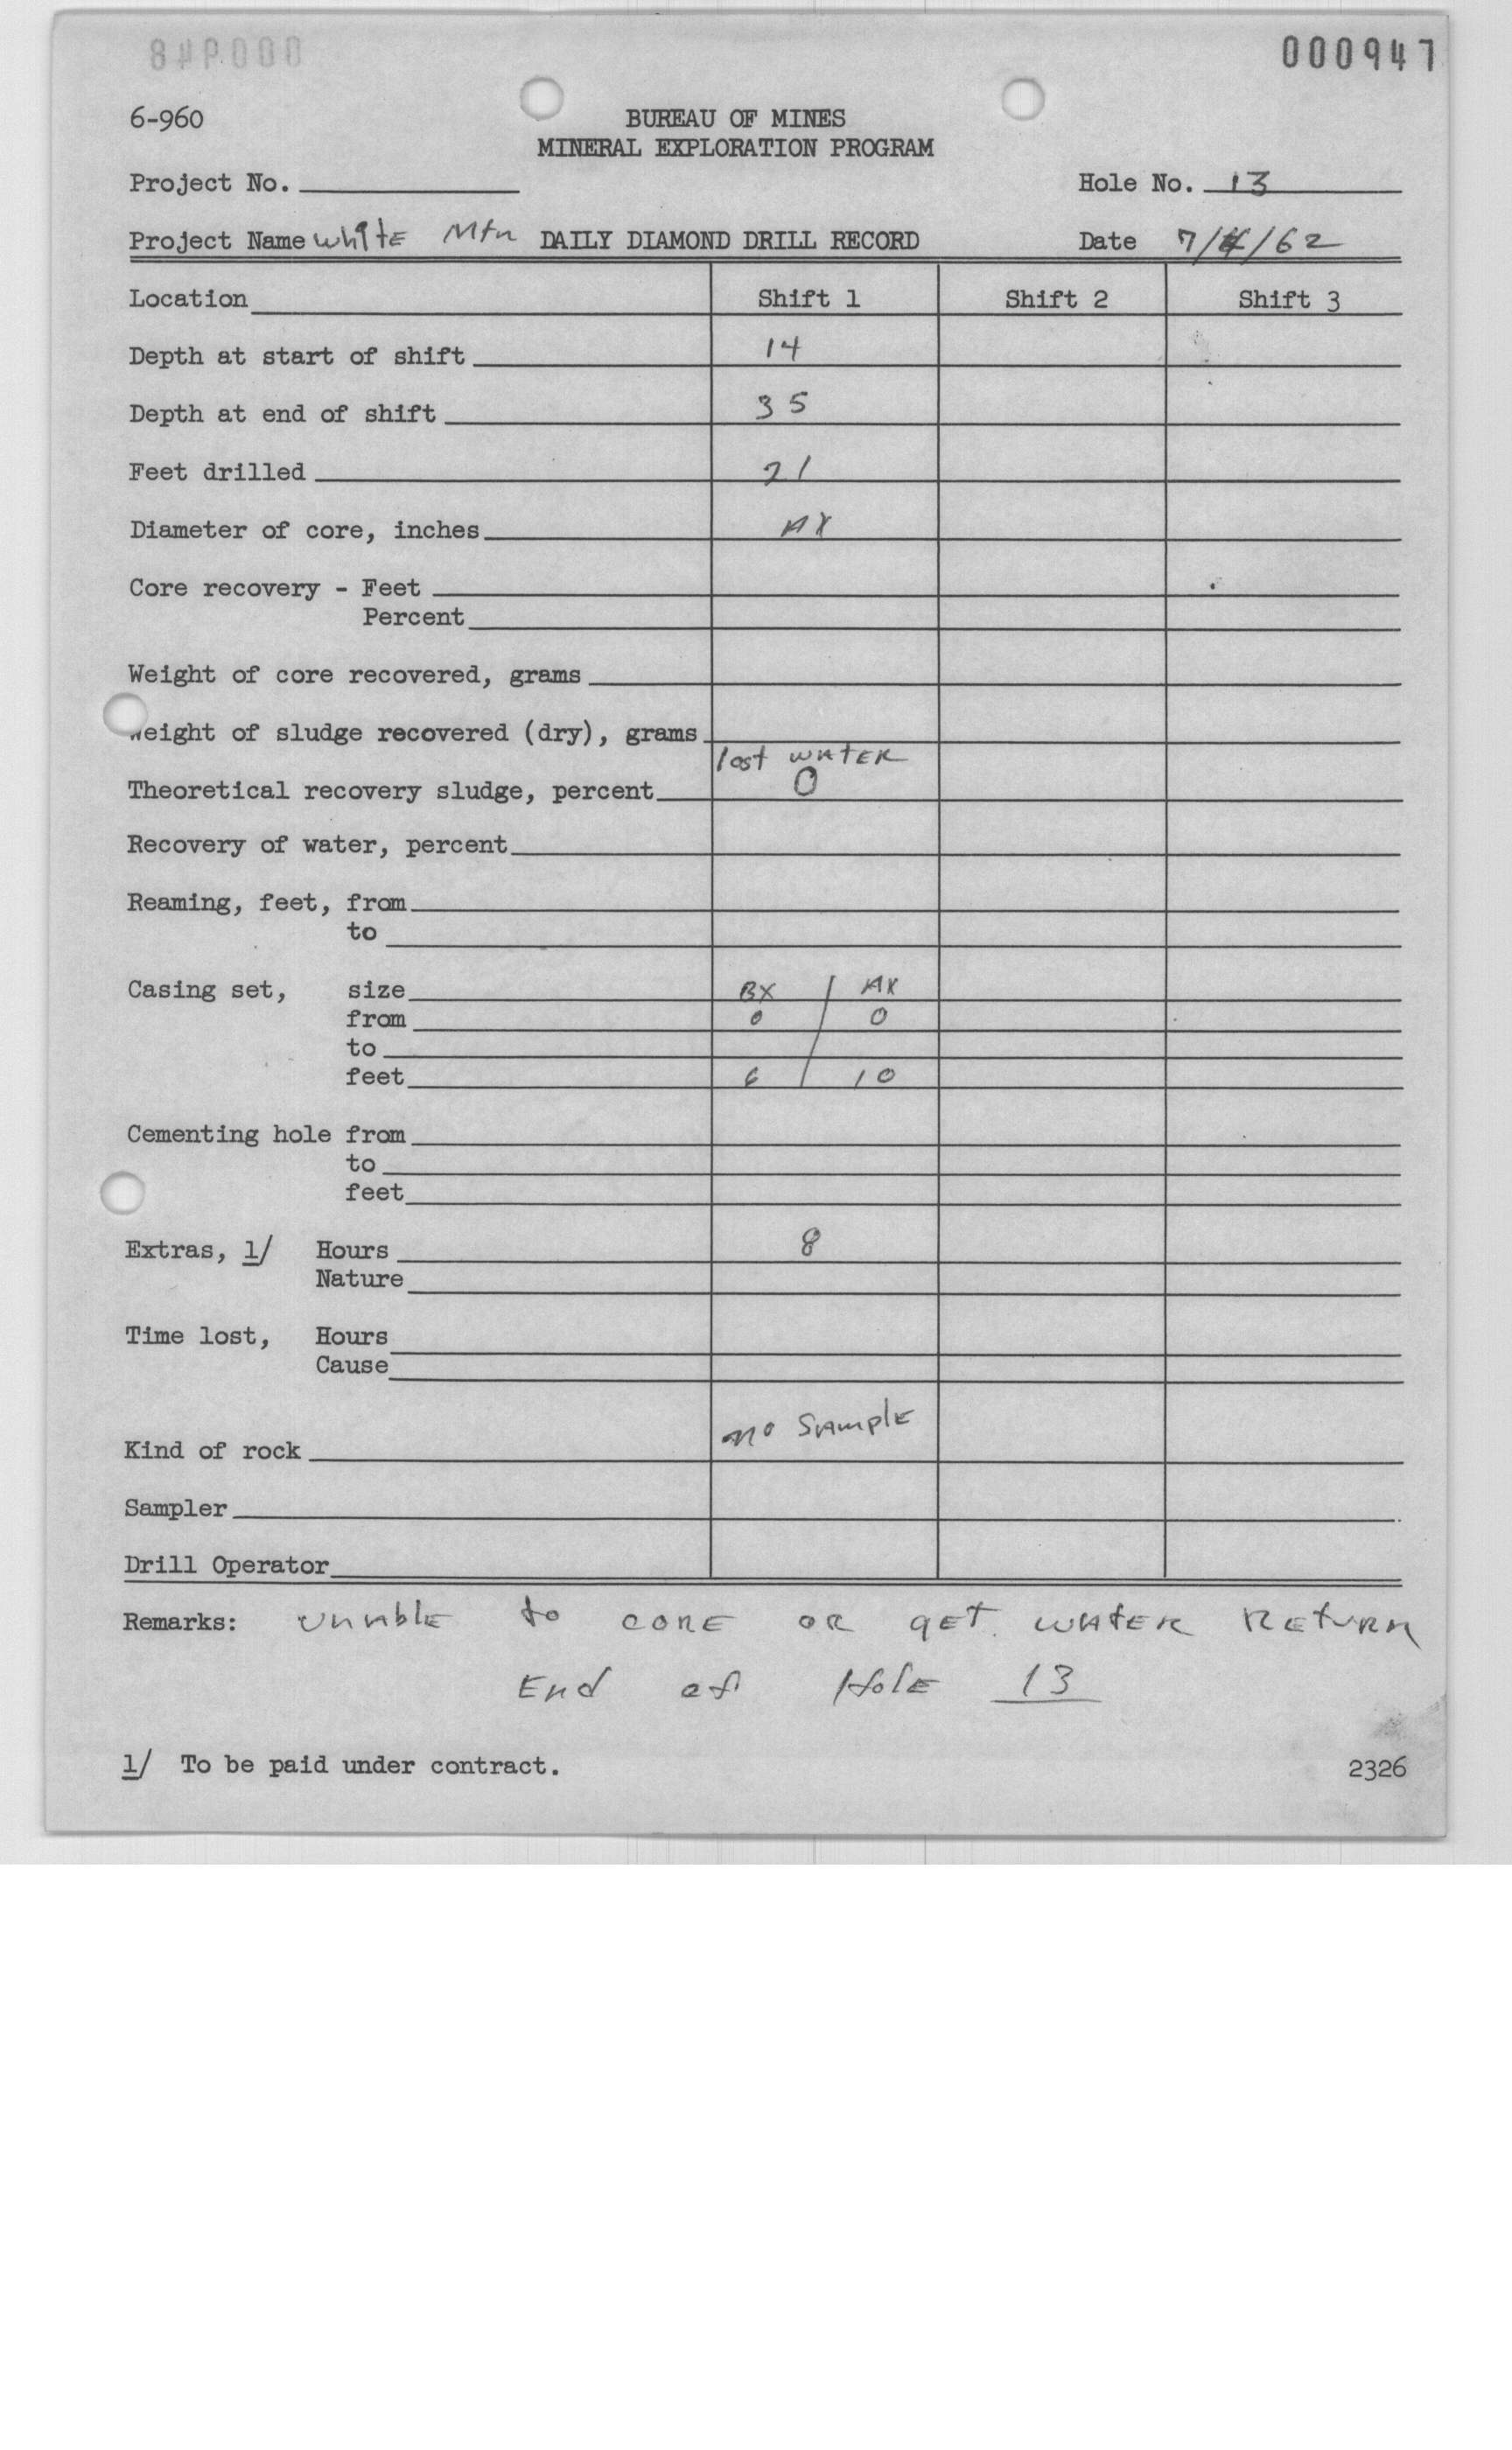 000947
6-960
BUREAU OF MINES
MINERAL EXPLORATION PROGRAM
Project No.
Hole No. 13
Project Name White Mtn DAILY DIAMOND DRILL RECORD Date 7/4/62
Location Shift 1 Shift 2 Shift 3
Depth at start of shift 14
Depth at end of shift 35
Feet drilled 21
Diameter of core, inches AX
Core recovery - Feet
Percent
Weight of core recovered, grams
Weight of sludge recovered (dry), grams
lost WATER
Theoretical recovery sludge, percent 0
Recovery of water, percent
Reaming, feet, from
to
Casing set, size BX / AX
from 0 0
to
feet 6 10
Cementing hole from
to
feet
Extras, 1/ Hours 8
Nature
Time lost, Hours
Cause
Kind of rock no Sample
Sampler
Drill Operator
Remarks: Unable to CORE OR GET WATER RETURN
End of Hole 13
1/ To be paid under contract.
2326